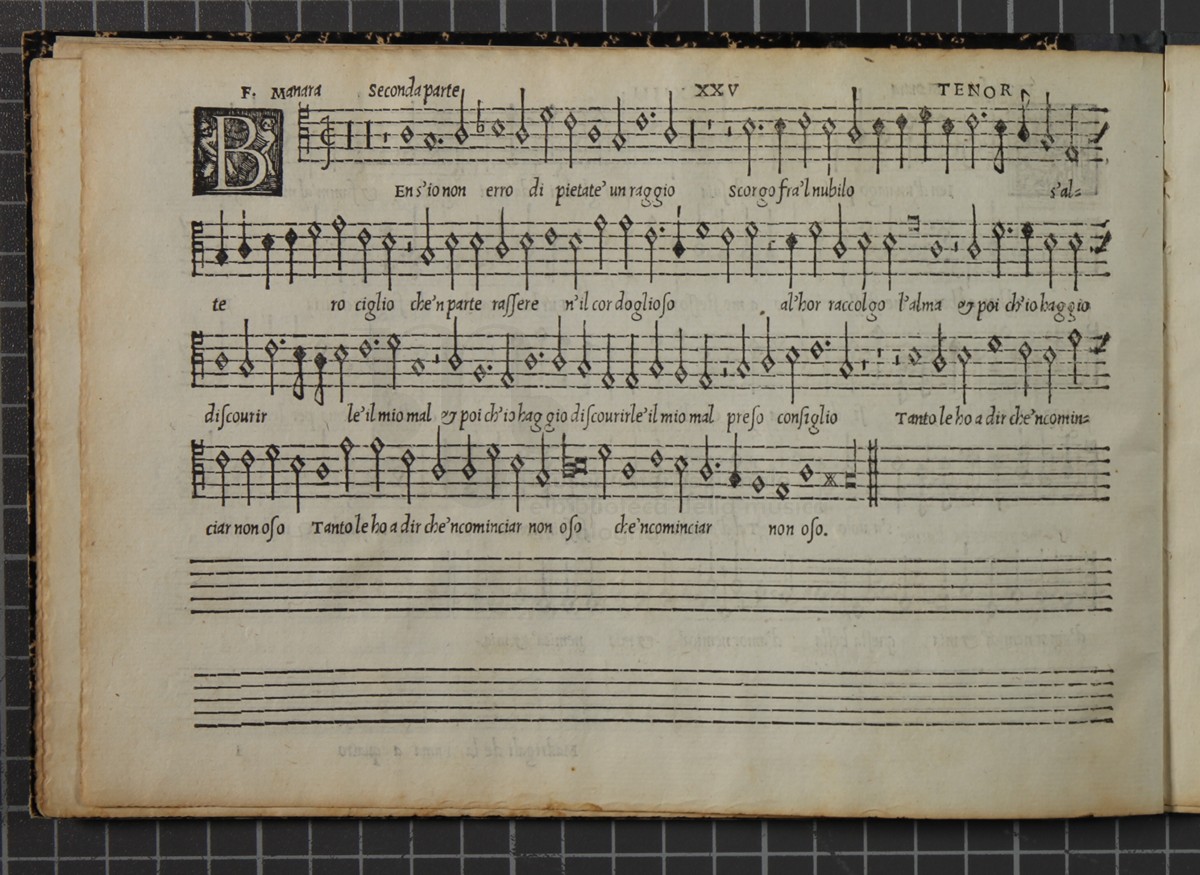 F. Manara Seconda parte XXV TENOR
BEn s'io non erro di pietate' un raggio Scorgo fra'l nubilo s'al-
te ro ciglio che'n parte rassere n'il cor doglioso al'hor raccolgo l'alma & poi ch'io haggio
discourir le'il mio mal & poi ch'io haggio discourirle'il mio mal preso consiglio Tanto le ho a dir che'ncomin-
ciar non oso Tanto le ho a dir che'ncominciar non oso che'ncominciar non oso.